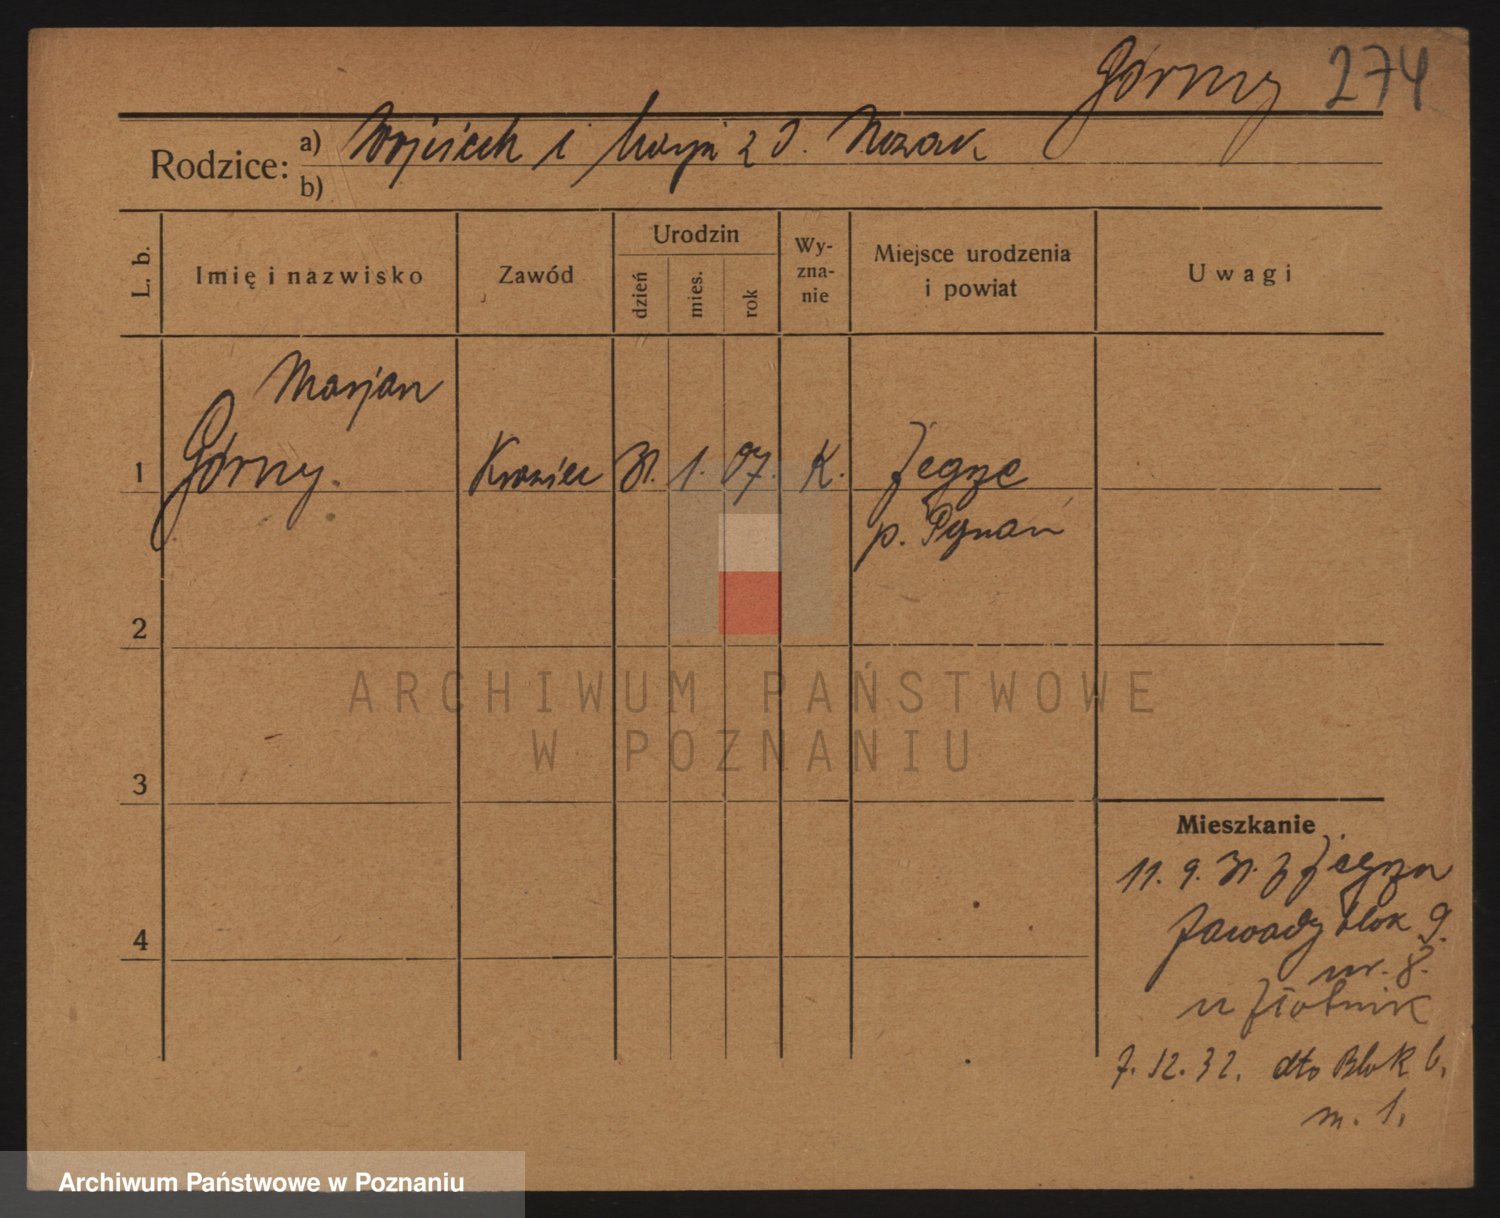 Górny 274
Rodzice: a) Wojciech i Marja z d. Nowak
b)
L. b.
Imię i nazwisko
Zawód
Urodzin
dzień
mies.
rok
Wy-
zna-
nie
Miejsce urodzenia
i powiat
Uwagi
Marjan
1 Górny. Krawiec 31. 1. 07. K. Żegrze
p. Poznań
2
ARCHIWUM PAŃSTWOWE
W POZNANIU
3
Mieszkanie
11. 9. 31. z Żegrza
Zawady blok 9.
4
nr. 8.
u
7. 12. 32. dto Blok 6.
m. 1.
Archiwum Państwowe w Poznaniu